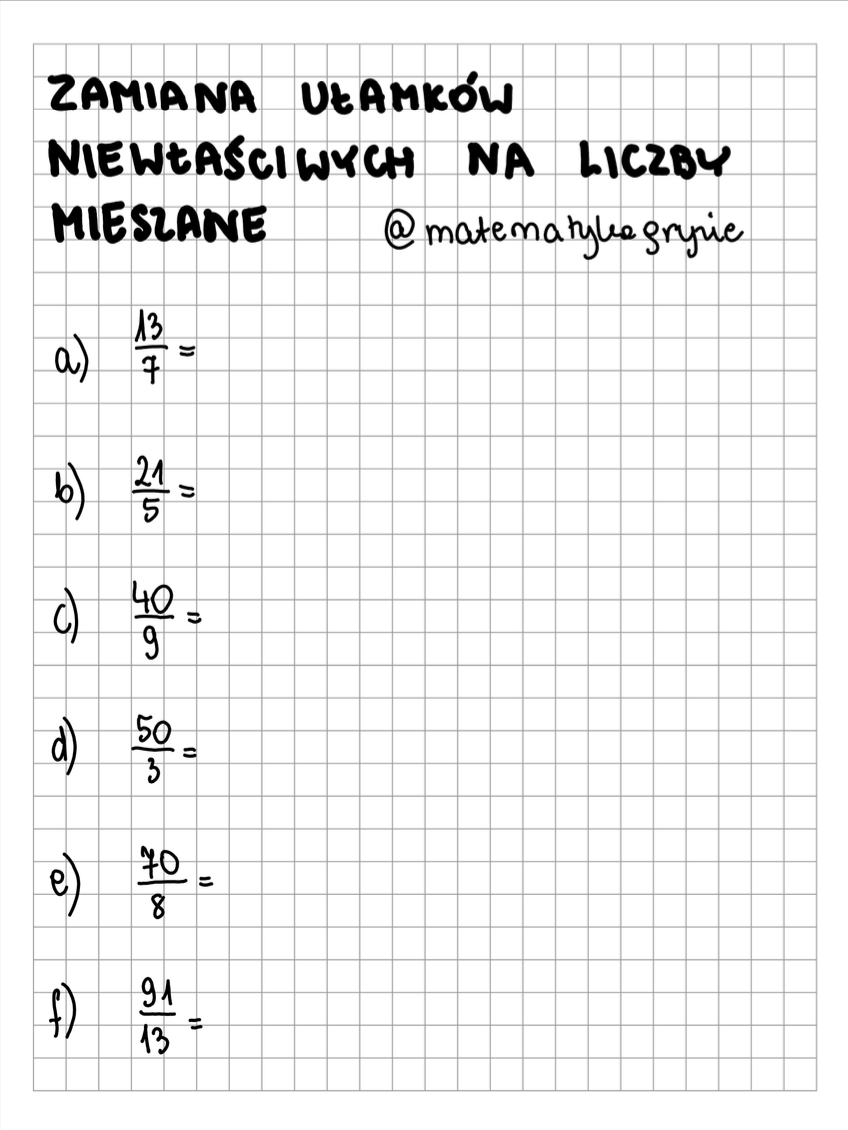 ZAMIANA UŁAMKÓW
NIEWŁAŚCIWYCH NA LICZBY
MIESZANE @matematykagrypie
a) 13/7 =
b) 21/5 =
c) 40/9 =
d) 50/3 =
e) 70/8 =
f) 91/13 =